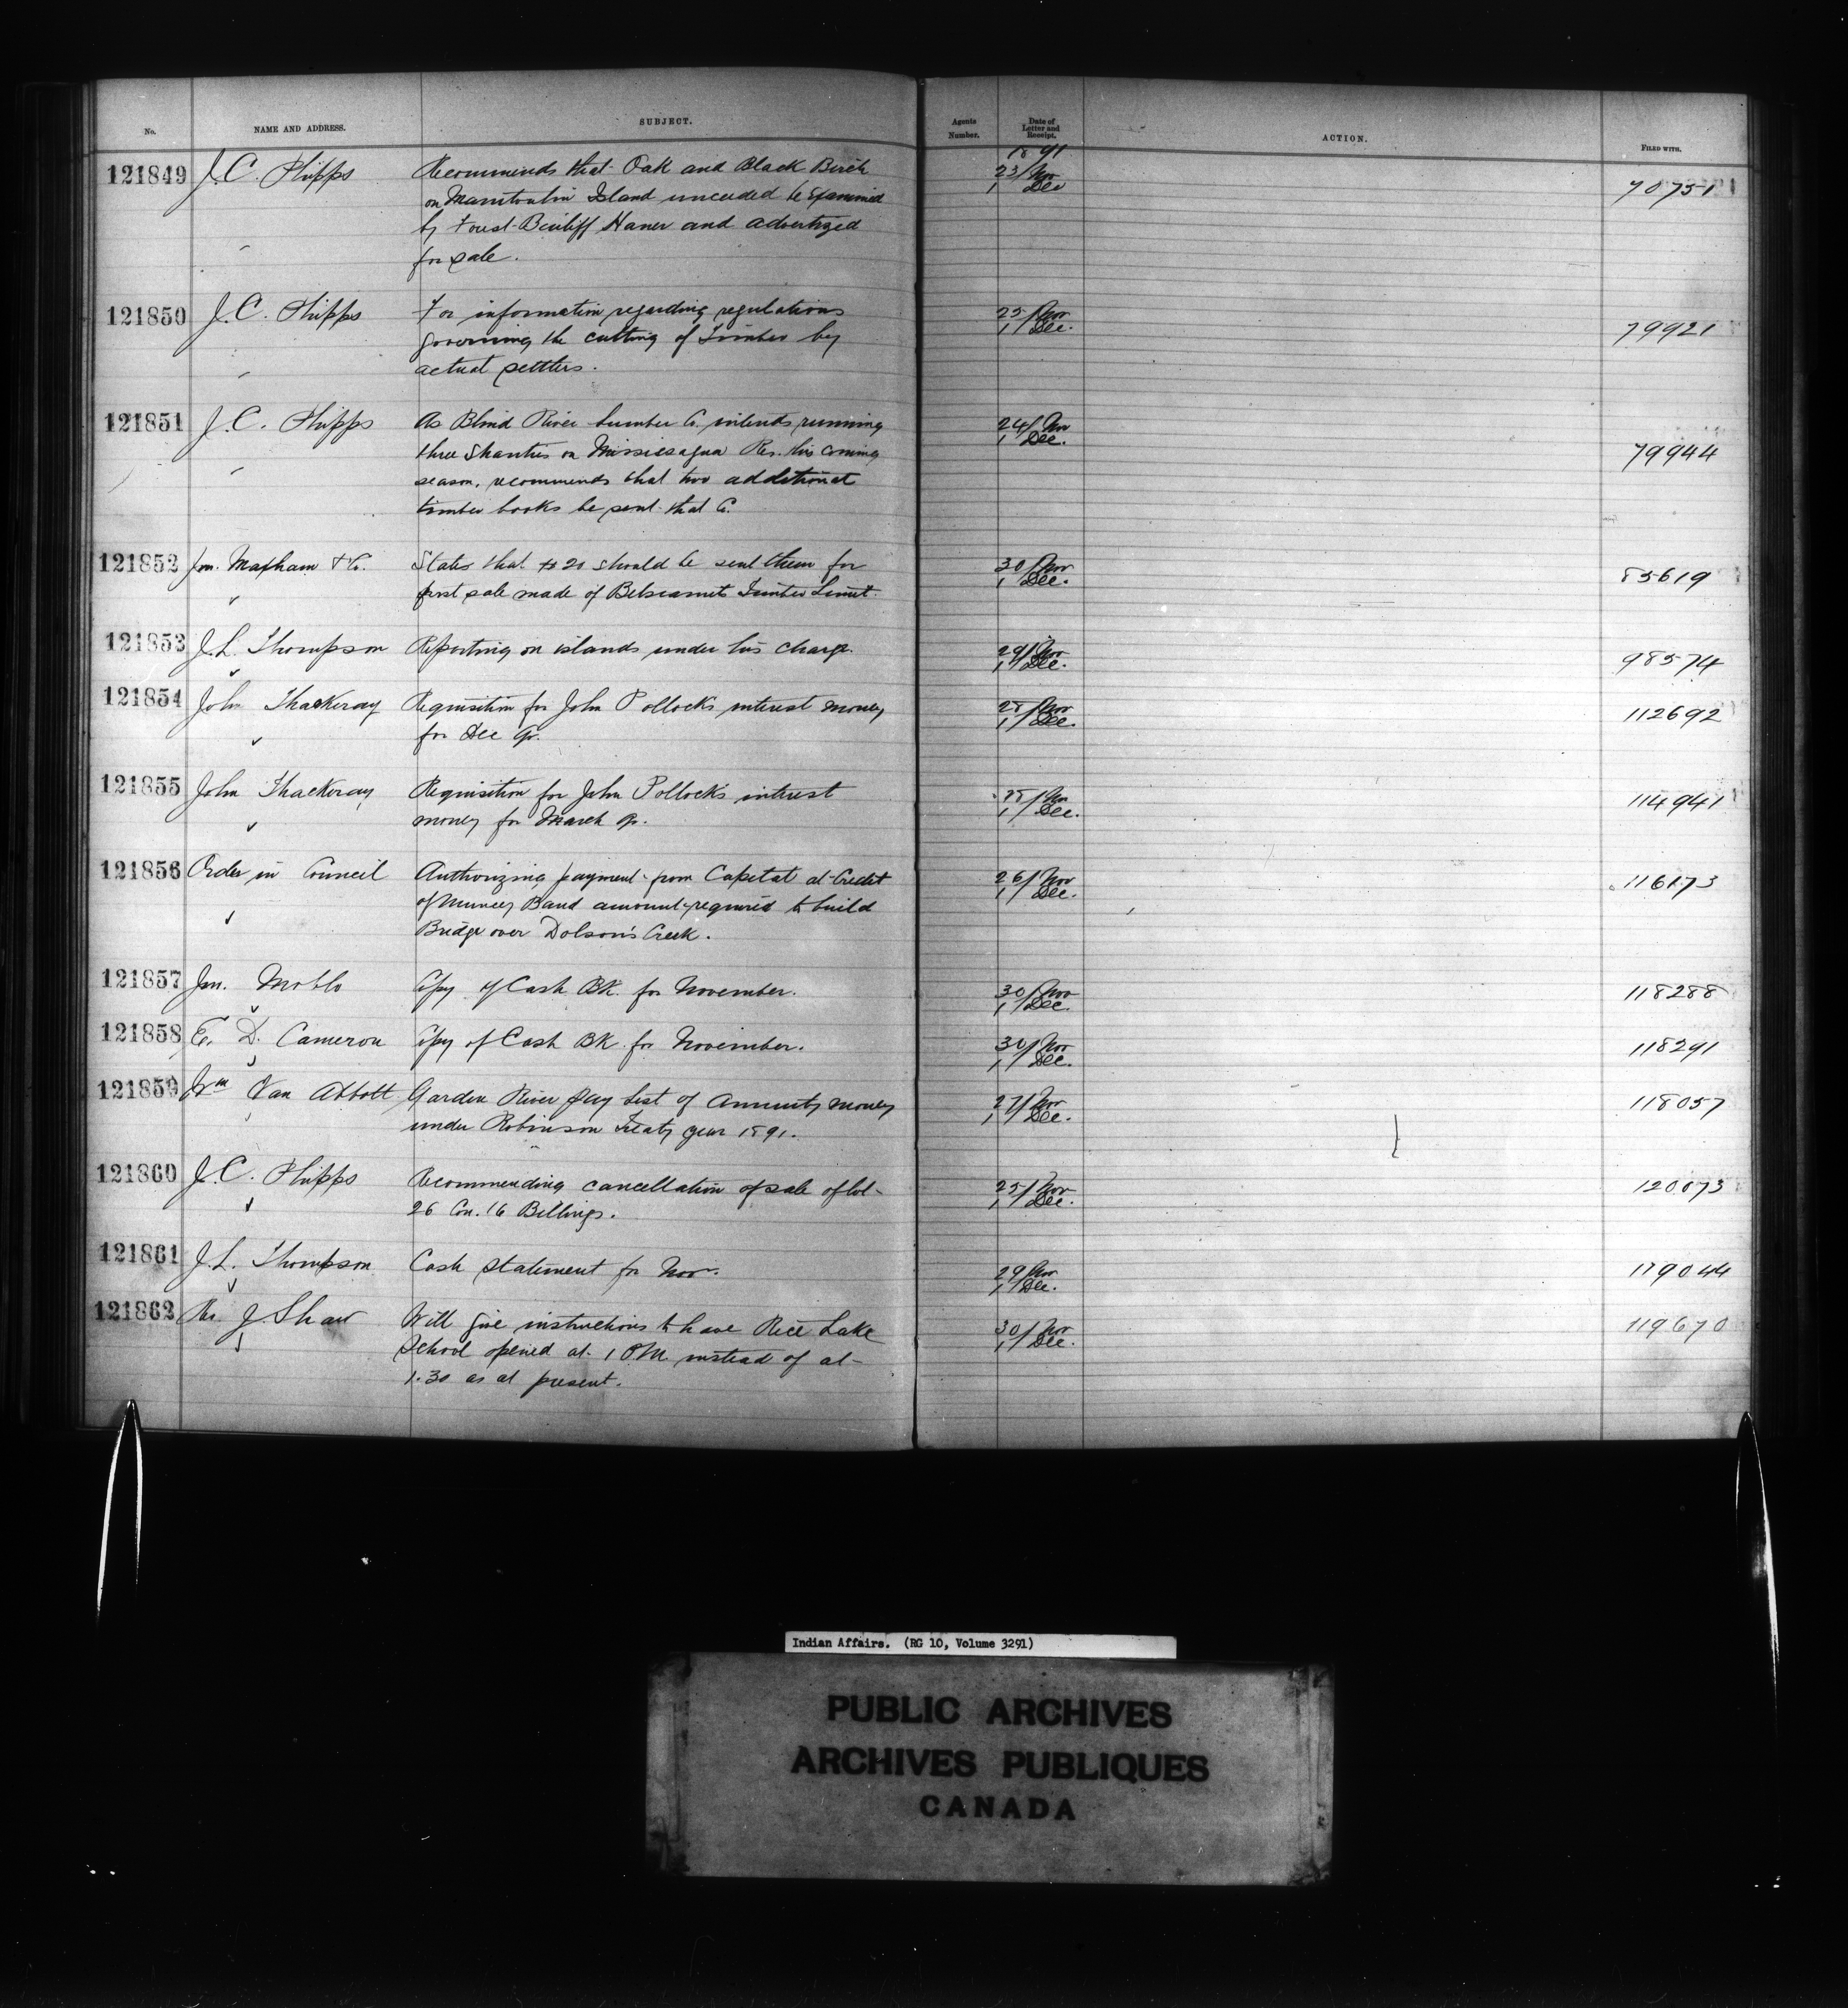 No.
NAME AND ADDRESS.
SUBJECT.
Agents Number.
Date of Letter and Receipt.
ACTION.
FILED WITH.
1891
121849 J. C. Phipps Recommends that Oak and Black Birch 23/Nov 1/Dec 70751
on Manitoulin Island unceded be examined
by Forest Bailiff Haner and advertized
for sale.
121850 J. C. Phipps For information regarding regulations 25/Nov 1/Dec. 79921
governing the cutting of Timber by
actual settlers.
121851 J. C. Phipps As Blind River Lumber Co. intends running 24/Nov 1/Dec. 79944
three Shanties on Mississagua Res. this coming
season, recommends that two additional
timber books be sent that Co.
121852 Maxham & Co. States that $20 should be sent them for 30/Nov 1/Dec. 85619
first sale made of Betsiamits Timber Limit.
121853 J. L. Thompson Reporting on islands under his charge. 29/Nov 1/Dec. 98574
121854 John Thackeray Requisition for John Pollock's interest money 28/Nov 1/Dec. 112692
for Dec qr.
121855 John Thackeray Requisition for John Pollock's interest 28/Nov 1/Dec. 114941
money for March qr.
121856 Order in Council Authorizing payment from Capital at Credit 26/Nov 1/Dec. 116173
of Muncey Band amount required to build
Bridge over Dolson's Creek.
121857 Copy of Cash BK. for November. 30/Nov 1/Dec. 118288
121858 E. D. Cameron Copy of Cash BK. for November. 30/Nov 1/Dec. 118291
121859 Wm Van Abbott Garden River Pay List of Annuity money 27/Nov 1/Dec. 118057
under Robinson Treaty year 1891.
121860 J. C. Phipps Recommending cancellation of sale of lot 25/Nov 1/Dec. 120073
26 Con. 16 Billings.
121861 J. L. Thompson Cash statement for Nov. 29/Nov 1/Dec. 119044
121862 J. Shaw Will give instructions to have Rice Lake 30/Nov 1/Dec. 119670
School opened at 1 P.M. instead of at
1.30 as at present.
Indian Affairs. (RG 10, Volume 3291)
PUBLIC ARCHIVES
ARCHIVES PUBLIQUES
CANADA